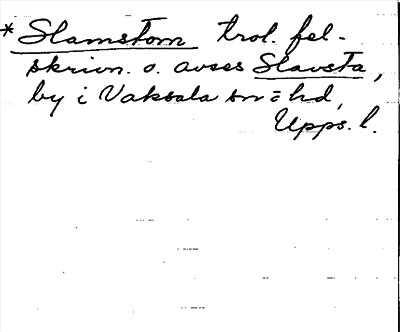 * Slamstom trol. fel-
skrivn. o. avses Slavsta,
by i Vaksala sn = hd,
Upps. l.